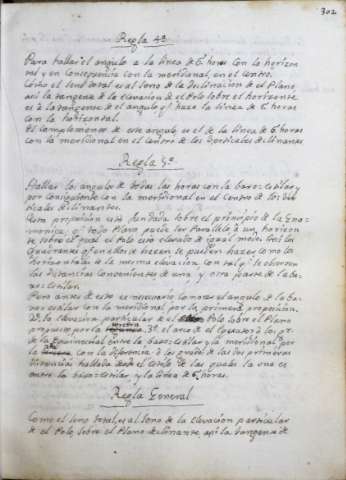 302
Regla 4ª
Para hallar el angulo a la linea de 6 horas con la horizon
tal y en consequencia con la meridional, en el centro.
Como el seno total es al seno de la declinacion de el Plano,
asi la tangente de la elevacion de el Polo sobre el horizonte
es à la tangente de el angulo q hace la linea de 6 horas
con la horizontal.
El complemento de este angulo es el de la linea de 6 horas
con la meridional en el centro de los Verticales declinantes
Regla 5ª
Hallar los angulos de todas las horas con la substilar y
por consiguiente con la meridional en el centro de los Ver
ticales declinantes.
Esta proposicion està fundada sobre el principio de la Gno=
monica, q todo Plano puede ser Parallelo à un horizon
te, sobre el qual el Polo està elevado de igual modo; los
quadrantes q en ellos se hacen se pueden hacer como los
horizontales de la misma elevacion con tal q se observen
las distancias convenientes de una y otra parte de la
substilar.
Pero antes de esto es necesario conocer el angulo de la
substilar con la meridional por la primera proposicion.
2º la elevacion particular de el Polo sobre el Plano
propuesto por la 3º el arco de el Equator ò los gr.
de la equinoccial entre la substilar y la meridional por
la con la diferencia à los grados de las dos primeras
distancias hallada de las quales la una es
entre la substilar y la linea de 6 horas.
Regla General
Como el seno total, es al seno de la elevacion particular
de el Polo sobre el Plano declinante, asi la tangente de